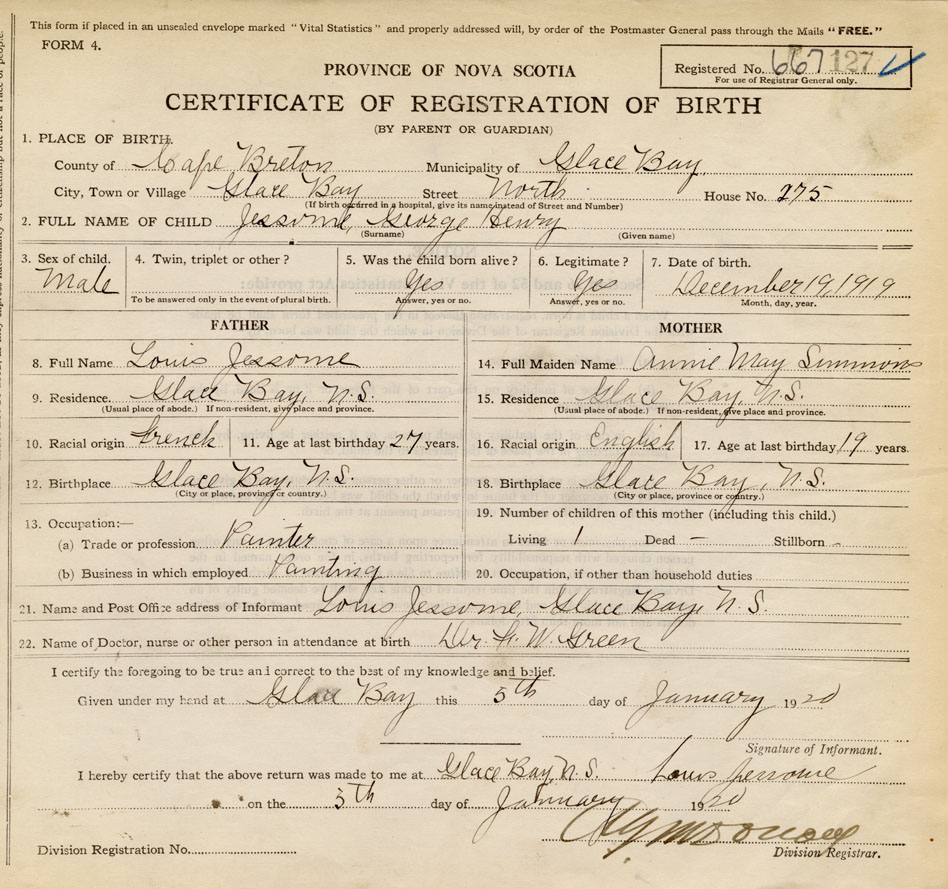 This form if placed in an unsealed envelope marked "Vital Statistics" and properly addressed will, by order of the Postmaster General pass through the Mails "FREE."
FORM 4.
Registered No. 667 127
For use of Registrar General only.
PROVINCE OF NOVA SCOTIA
CERTIFICATE OF REGISTRATION OF BIRTH
(BY PARENT OR GUARDIAN)
1. PLACE OF BIRTH.
County of Cape Breton Municipality of Glace Bay
City, Town or Village Glace Bay Street North House No. 275
(If birth occurred in a hospital, give its name instead of Street and Number)
2. FULL NAME OF CHILD Jessome, George Henry
(Surname) (Given name)
3. Sex of child. 4. Twin, triplet or other? 5. Was the child born alive? 6. Legitimate? 7. Date of birth.
Male Yes Yes December 19, 1919
To be answered only in the event of plural birth. Answer, yes or no. Answer, yes or no. Month, day, year.
FATHER MOTHER
8. Full Name Louis Jessome 14. Full Maiden Name Annie May Simmons
9. Residence. Glace Bay, N.S. 15. Residence Glace Bay, N.S.
(Usual place of abode.) If non-resident, give place and province. (Usual place of abode.) If non-resident, give place and province.
10. Racial origin French 11. Age at last birthday 27 years. 16. Racial origin English 17. Age at last birthday 19 years.
12. Birthplace Glace Bay, N.S. 18. Birthplace Glace Bay, N.S.
(City or place, province or country.) (City or place, province or country.)
13. Occupation:— 19. Number of children of this mother (including this child.)
(a) Trade or profession Painter Living 1 Dead — Stillborn -
(b) Business in which employed Painting 20. Occupation, if other than household duties
21. Name and Post Office address of Informant Louis Jessome, Glace Bay, N.S.
22. Name of Doctor, nurse or other person in attendance at birth Dr. H. W. Green
I certify the foregoing to be true and correct to the best of my knowledge and belief.
Given under my hand at Glace Bay this 5th day of January 1920
Signature of Informant.
I hereby certify that the above return was made to me at Glace Bay, N.S. Louis Jessome
on the 5th day of January 1920
Division Registration No. Division Registrar.